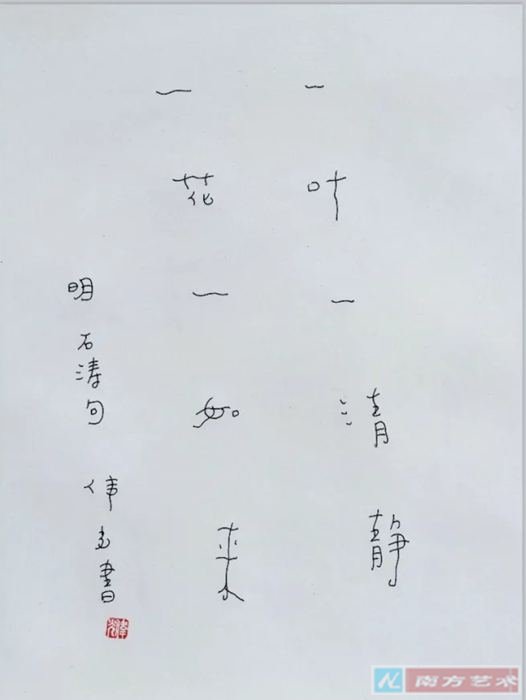 一叶一清静
一花一如来
明石涛句 伟 書
南方艺术